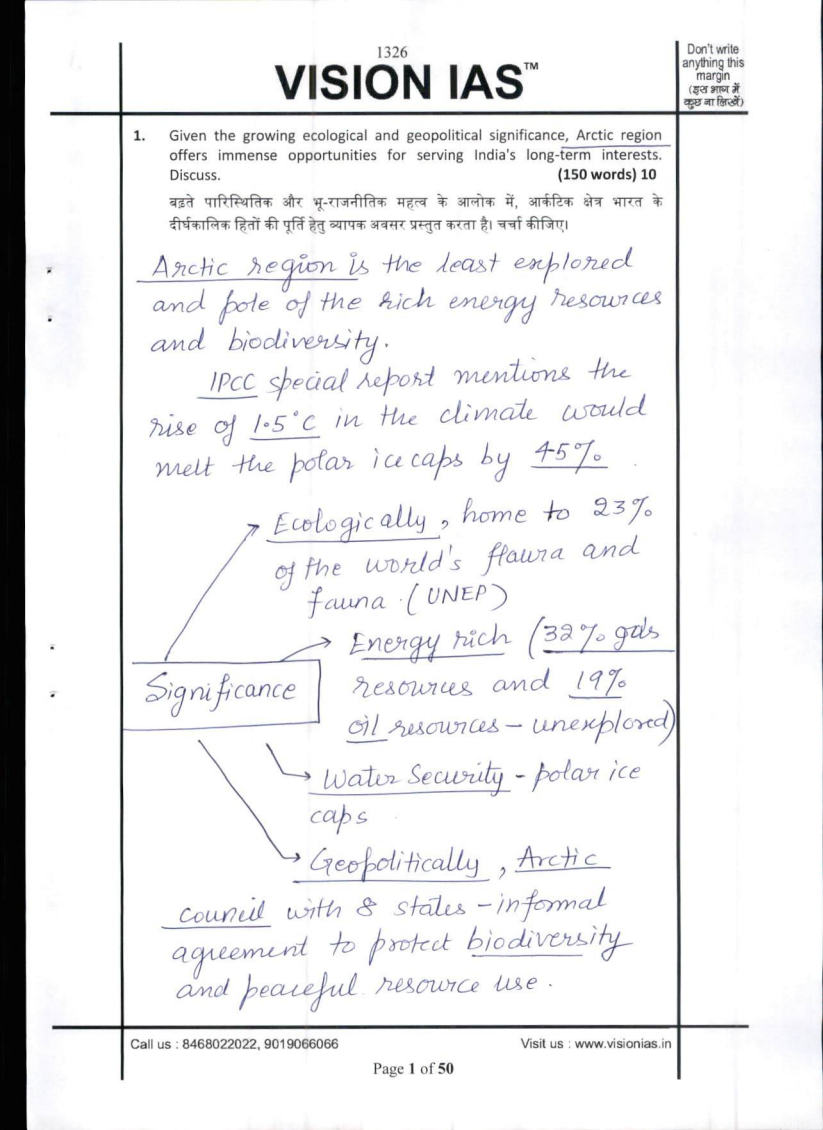 1326
VISION IAS™
Don't write
anything this
margin
(इस भाग में
कुछ ना लिखें)
1. Given the growing ecological and geopolitical significance, Arctic region
offers immense opportunities for serving India's long-term interests.
Discuss. (150 words) 10
बढ़ते पारिस्थितिक और भू-राजनीतिक महत्व के आलोक में, आर्कटिक क्षेत्र भारत के
दीर्घकालिक हितों की पूर्ति हेतु व्यापक अवसर प्रस्तुत करता है। चर्चा कीजिए।
Arctic region is the least explored
and pole of the rich energy resources
and biodiversity.
IPCC special report mentions the
rise of 1.5°C in the climate would
melt the polar ice caps by 45%.
Ecologically, home to 23%
of the world's flaura and
fauna. (UNEP)
Energy rich (32% gas
Significance
resources and 19%
oil resources - unexplored)
Water Security - polar ice
caps
Geopolitically, Arctic
council with 8 states - informal
agreement to protect biodiversity
and peaceful resource use.
Call us : 8468022022, 9019066066 Visit us : www.visionias.in
Page 1 of 50